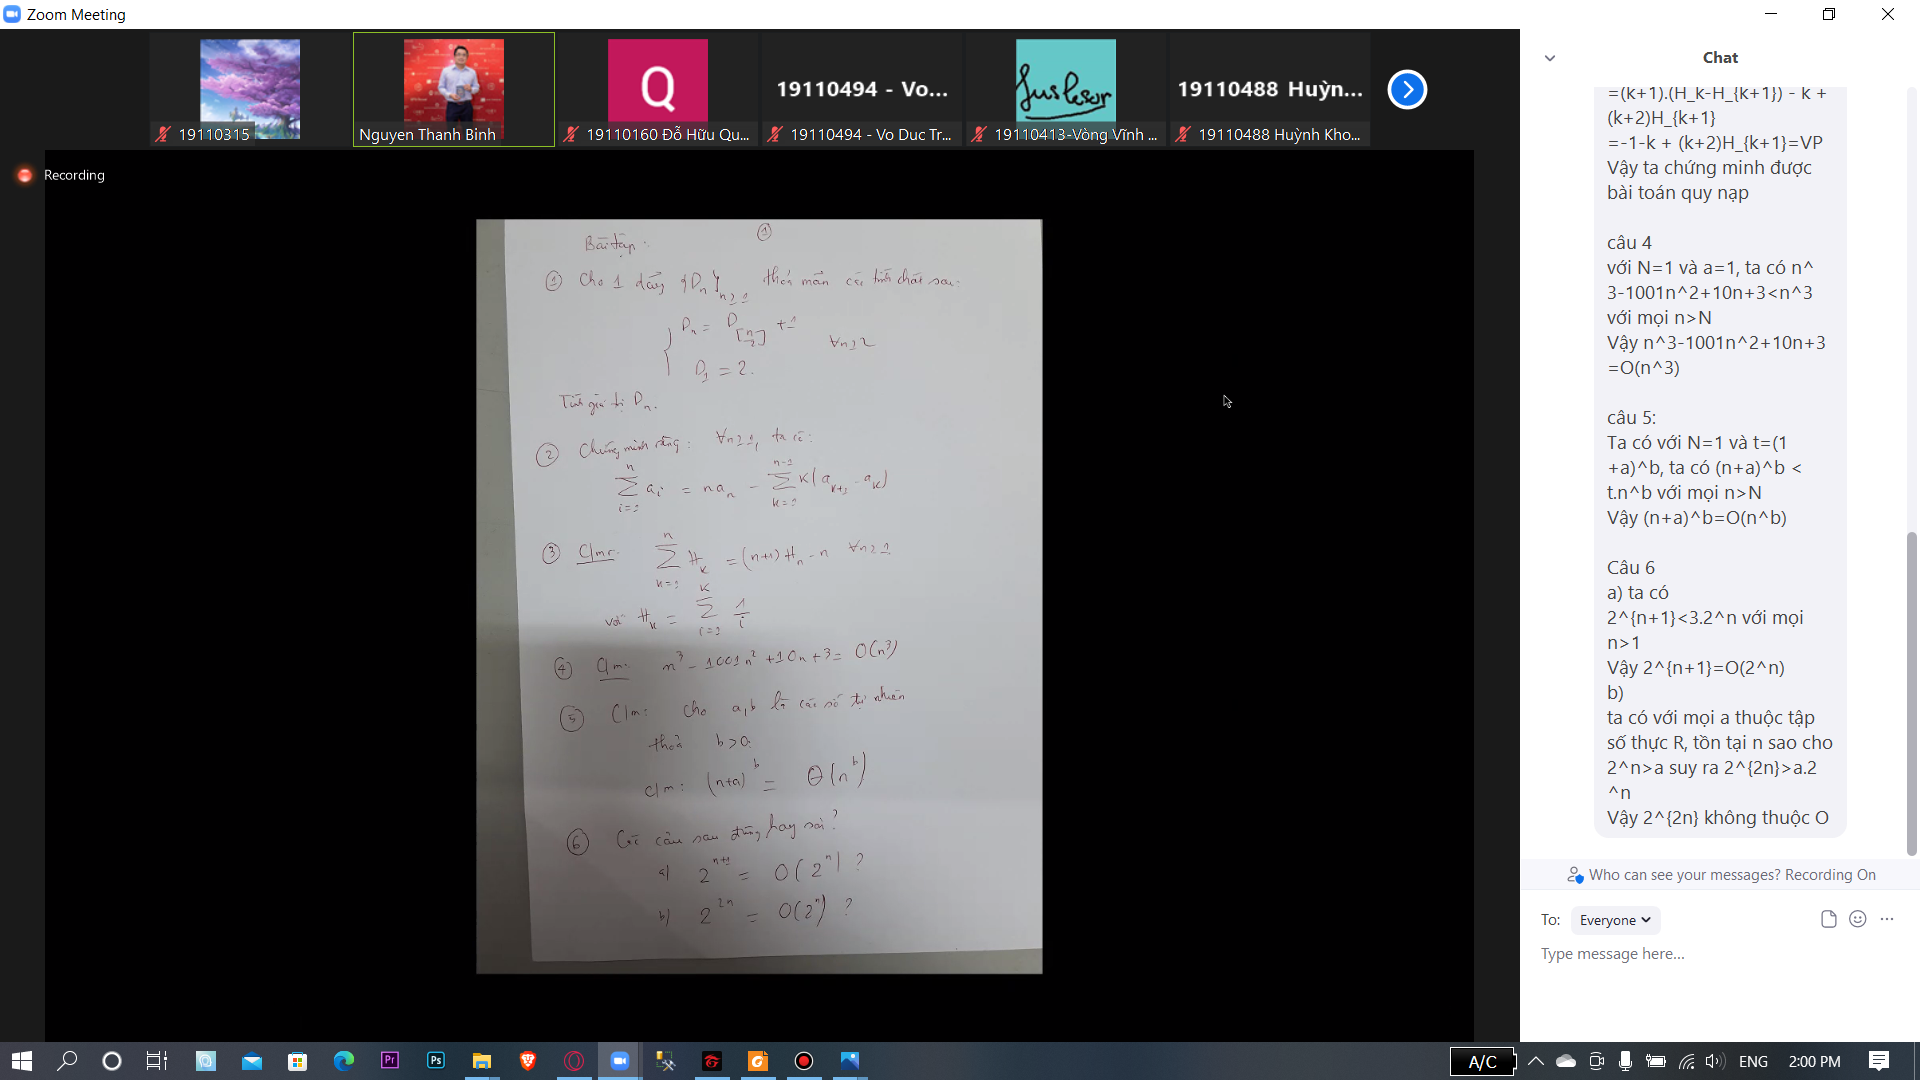 Zoom Meeting
19110315
Nguyen Thanh Binh
Q
19110160 Đỗ Hữu Qu...
19110494 - Vo...
19110494 - Vo Duc Tr...
19110413-Vòng Vĩnh ...
19110488 Huỳn...
19110488 Huỳnh Kho...
Recording
①
Bài tập:
① Cho 1 dãy {D_n}_{n≥1} thỏa mãn các tính chất sau:
D_n = D_{[n/2]} + 1
∀n≥2
D_1 = 2.
Tính giá trị D_n.
② Chứng minh rằng: ∀n≥1, ta có:
∑_{i=1}^{n} a_i = na_n - ∑_{k=1}^{n-1} k(a_{k+1} - a_k)
③ C/mr: ∑_{k=1}^{n} H_k = (n+1)H_n - n ∀n≥1
với H_k = ∑_{i=1}^{k} 1/i
④ C/m: n^3 - 1001n^2 + 10n + 3 = O(n^3)
⑤ C/m: Cho a,b là các số tự nhiên
thoả b>0.
c/m: (n+a)^b = Θ(n^b)
⑥ Các câu sau đúng hay sai?
a) 2^{n+1} = O(2^n) ?
b) 2^{2n} = O(2^n) ?
Chat
=(k+1).(H_k-H_{k+1}) - k +
(k+2)H_{k+1}
=-1-k + (k+2)H_{k+1}=VP
Vậy ta chứng minh được
bài toán quy nạp
câu 4
với N=1 và a=1, ta có n^
3-1001n^2+10n+3<n^3
với mọi n>N
Vậy n^3-1001n^2+10n+3
=O(n^3)
câu 5:
Ta có với N=1 và t=(1
+a)^b, ta có (n+a)^b <
t.n^b với mọi n>N
Vậy (n+a)^b=O(n^b)
Câu 6
a) ta có
2^{n+1}<3.2^n với mọi
n>1
Vậy 2^{n+1}=O(2^n)
b)
ta có với mọi a thuộc tập
số thực R, tồn tại n sao cho
2^n>a suy ra 2^{2n}>a.2
^n
Vậy 2^{2n} không thuộc O
Who can see your messages? Recording On
To: Everyone
Type message here...
Pr
Ps
A/C
ENG
2:00 PM